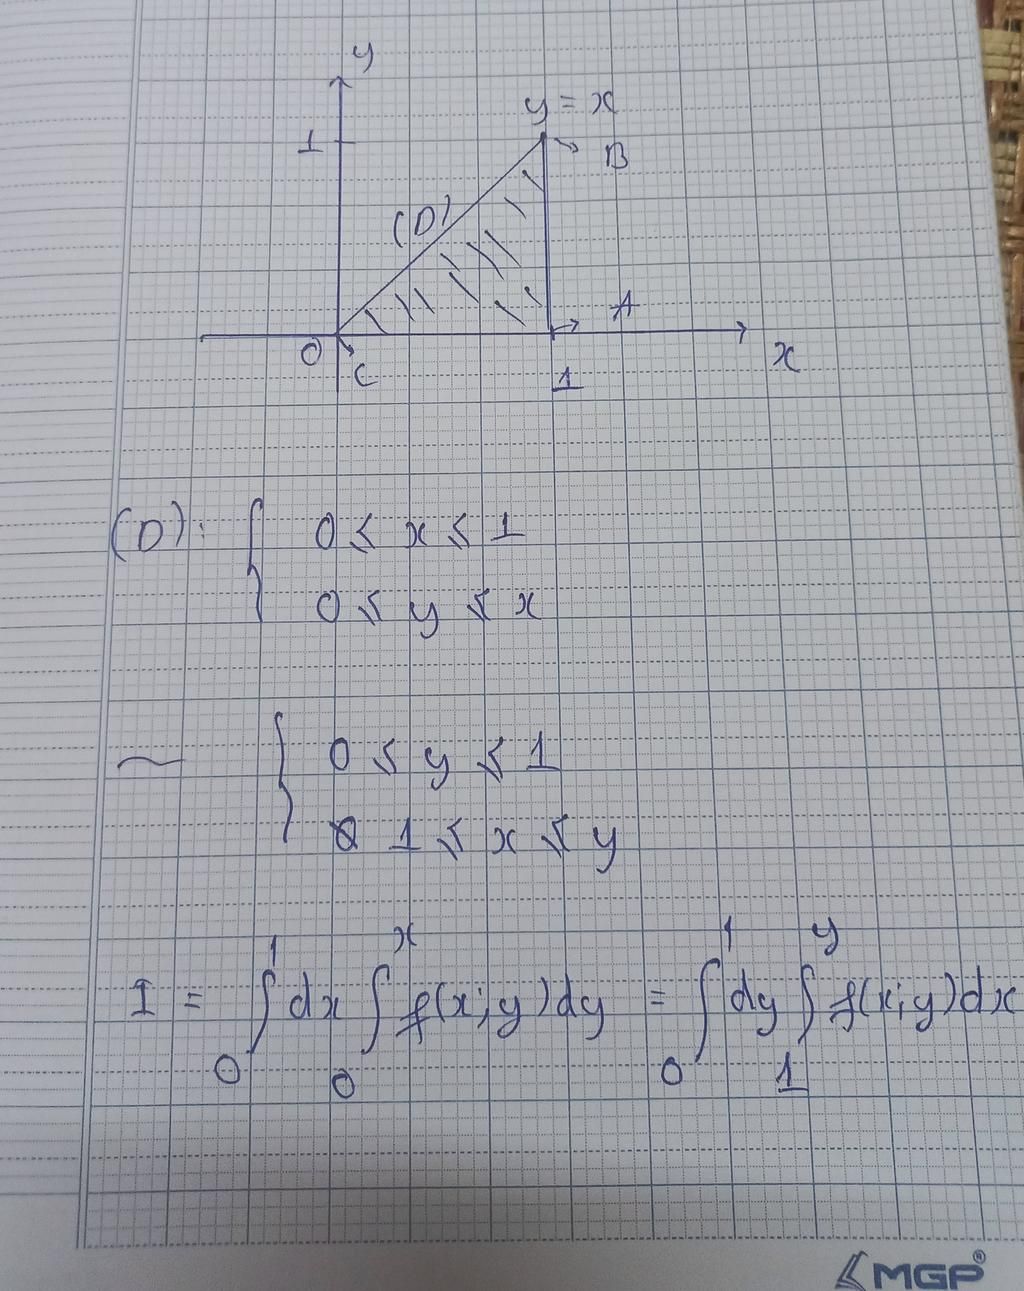 y
y = x
1
B
(D)
A
O
C
1
x
(D): { 0 ≤ x ≤ 1
0 ≤ y ≤ x
~ { 0 ≤ y ≤ 1
1 ≤ x ≤ y
I = ∫₀¹ dx ∫₀ˣ f(x;y)dy = ∫₀¹ dy ∫₁ʸ f(x;y)dx
MGP®